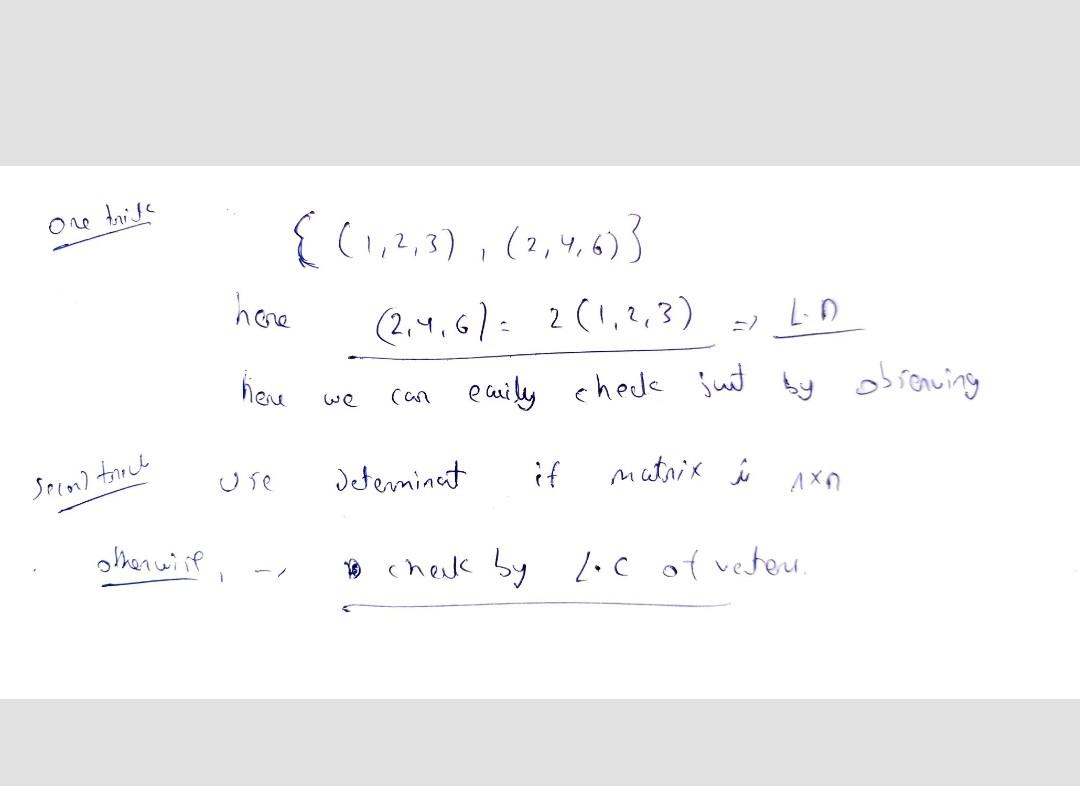 one trick
{ (1,2,3) , (2,4,6) }
here (2,4,6) = 2 (1,2,3) => L.D
here we can easily check just by observing
Second trick use Determinat if matrix is n×n
otherwise, -> check by L.C of vectors.